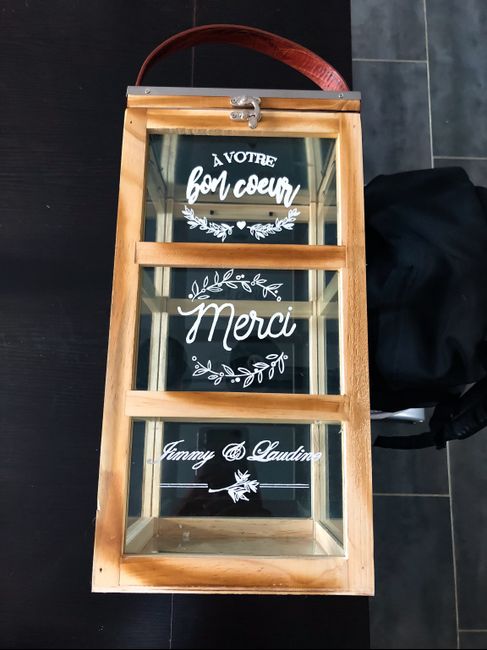 À VOTRE
bon coeur
Merci
Jimmy & Laudine